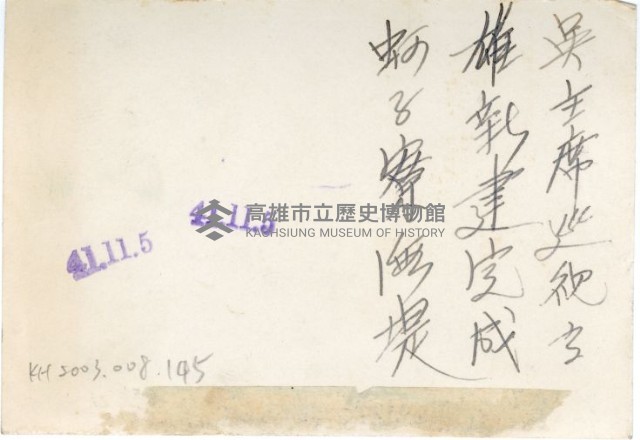 吳主席巡視高
雄新建完成
蚵子寮海堤
41.11.5
41.11.5
高雄市立歷史博物館
KAOHSIUNG MUSEUM OF HISTORY
KH2003.008.145